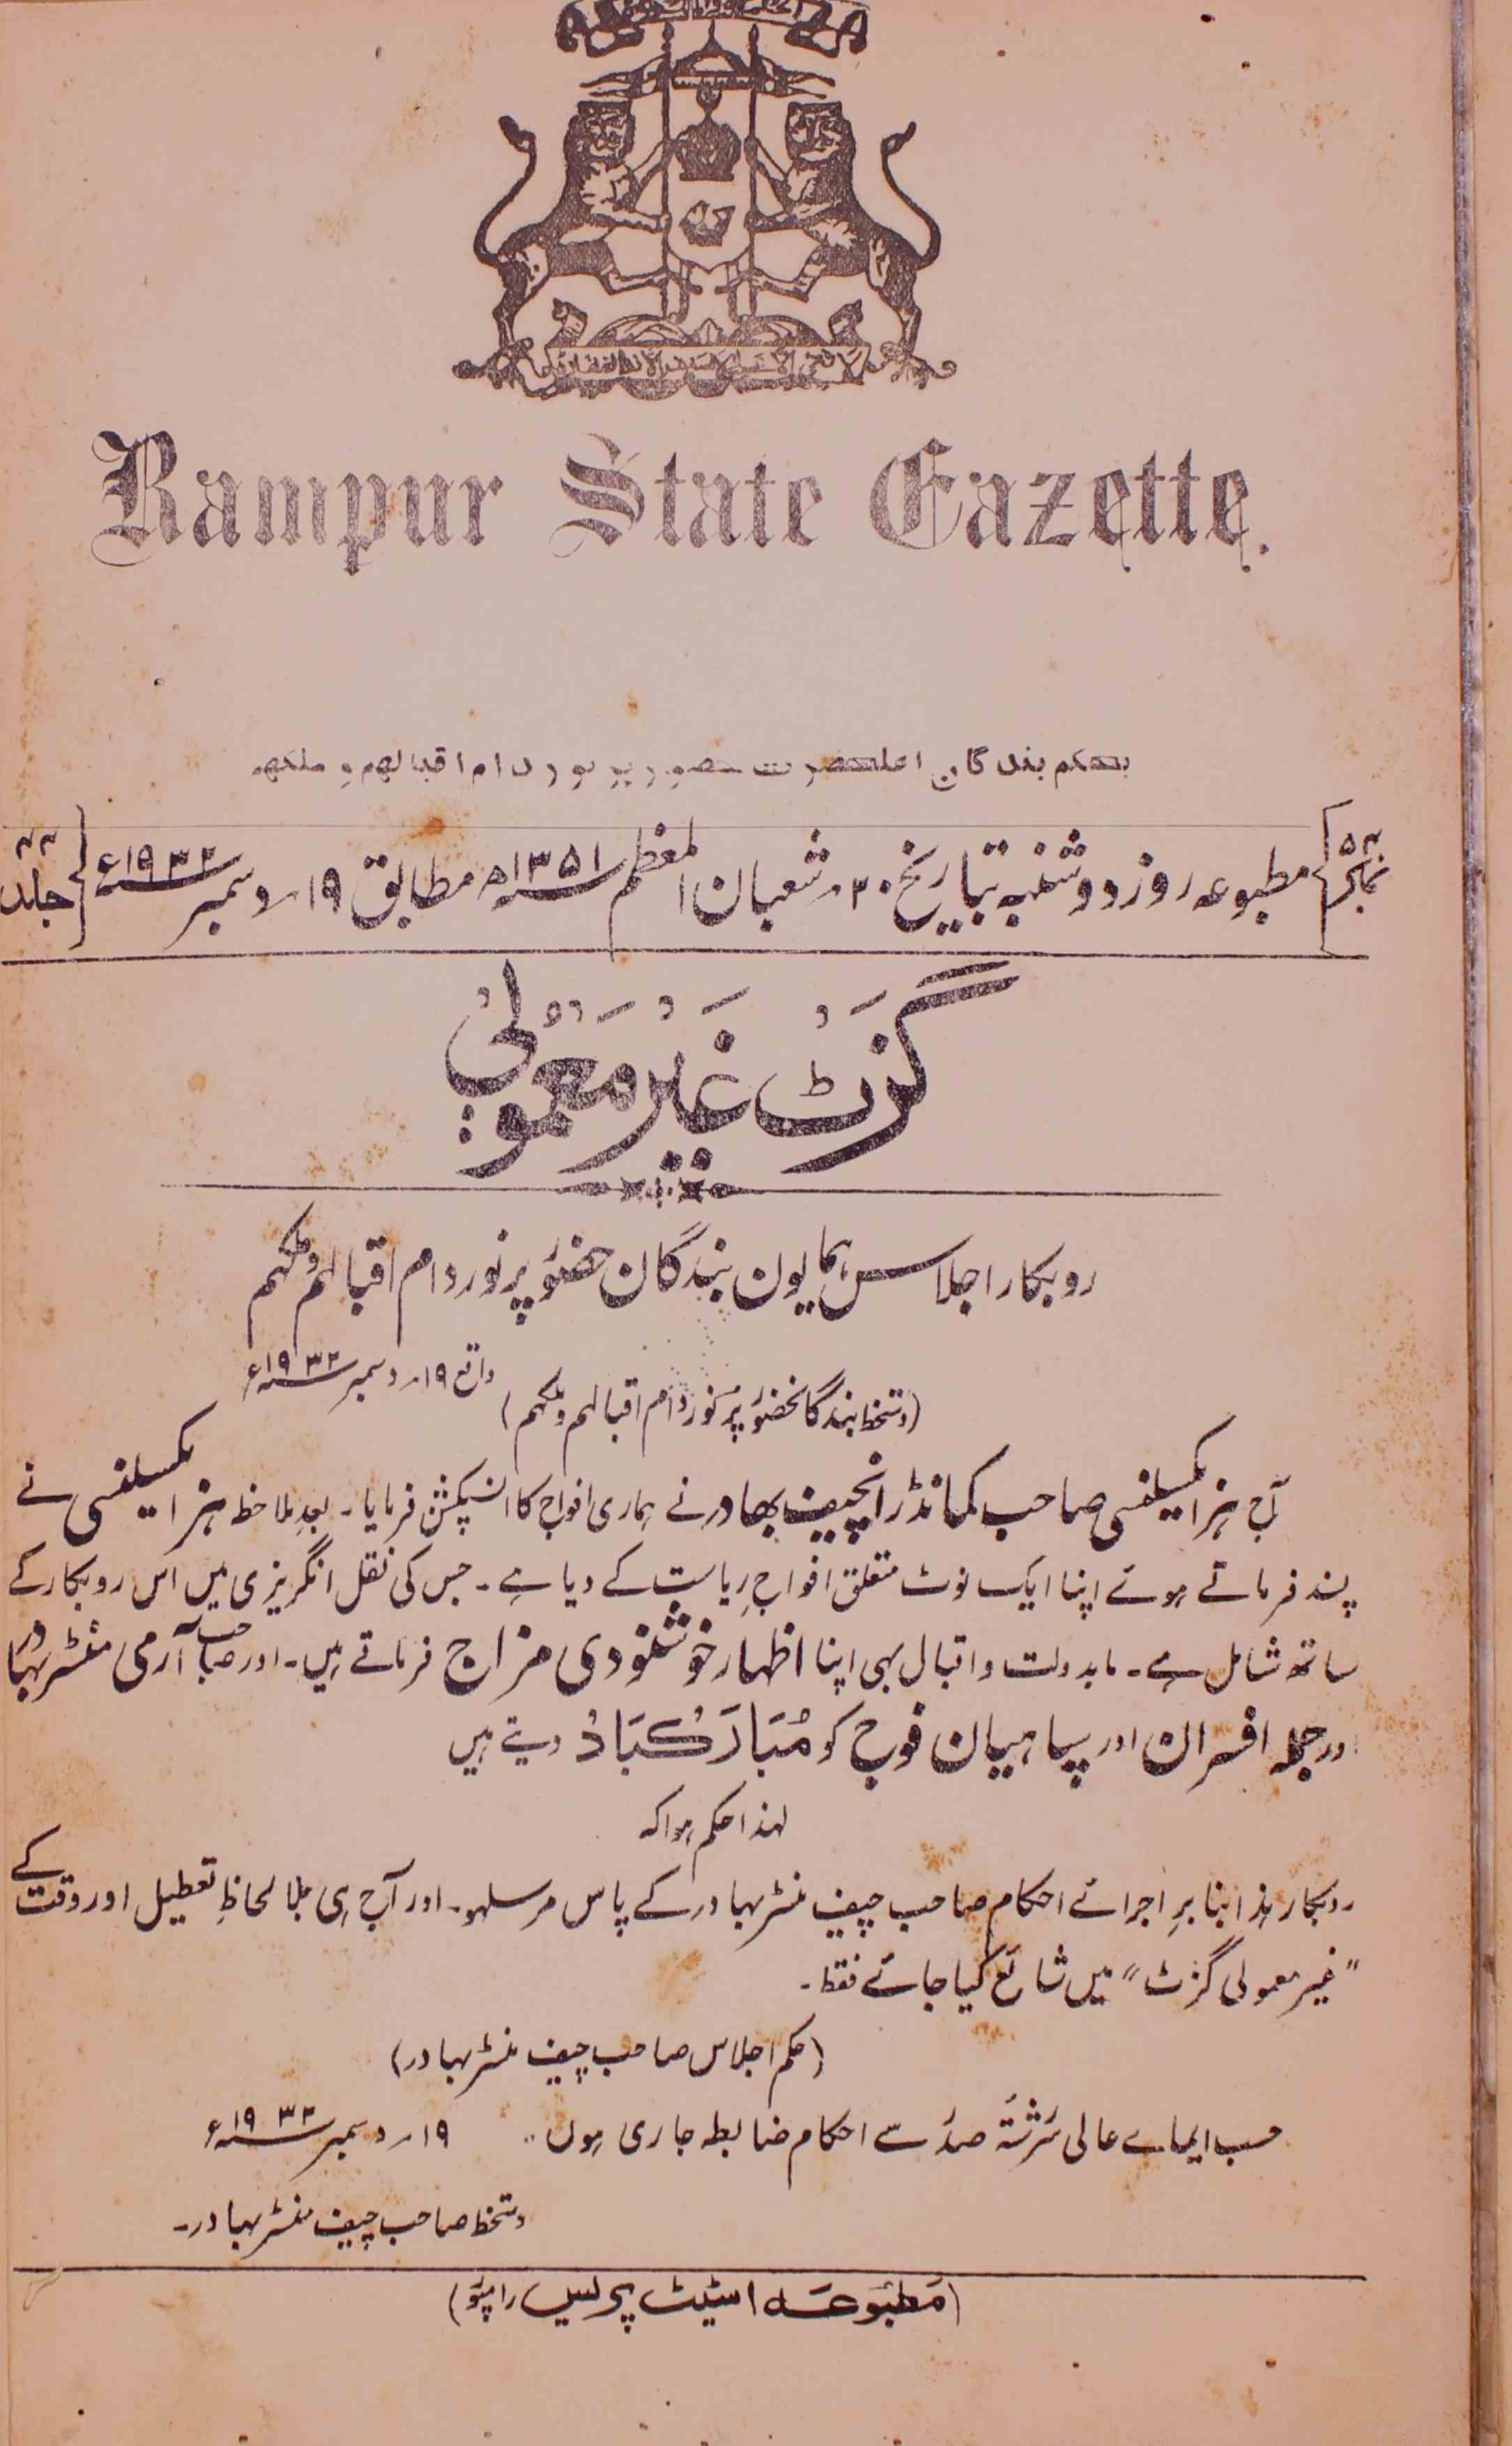 لا فتى الا علي لا سيف الا ذوالفقار
Rampur State Gazette.
بحکم بندگان اعلحضرت حضور پر نور دام اقبالهم و ملکهم
نمبر ۵۲ مطبوعہ روز دوشنبہ بتاریخ ۲۰ شعبان المعظم ۱۳۵۱ھ مطابق ۱۹ دسمبر ۱۹۳۲ء جلد ۴۴
گزٹ غیر معمولی
روبکار اجلاس ہمایون بندگان حضور پرنور دام اقبالہم وملکہم
واقع ۱۹ دسمبر ۱۹۳۲ء
(دستخط بندگانحضور پرنور دام اقبالہم وملکہم)
آج ہزاکسیلنسی صاحب کمانڈر انچیف بہادر نے ہماری افواج کا انسپکشن فرمایا۔ بعد ملاحظہ ہزاکسیلنسی نے
پسند فرماتے ہوئے اپنا ایک نوٹ متعلق افواجِ ریاست کے دیا ہے۔ جس کی نقل انگریزی میں اس روبکار کے
ساتھ شامل ہے۔ مابدولت و اقبال بھی اپنا اظہار خوشنودی مزاج فرماتے ہیں۔ اور صاحب آرمی منسٹر بہادر
اور جملہ افسران اور سپاہیان فوج کو مُبَارَکبَاد دیتے ہیں
لہذا حکم ہوا کہ
روبکار ہذا بنا برِ اجرائے احکام صاحب چیف منسٹر بہادر کے پاس مرسلہو۔ اور آج ہی بلا لحاظِ تعطیل اور وقت کے
"غیر معمولی گزٹ" میں شائع کیا جائے فقط۔
(حکم اجلاس صاحب چیف منسٹر بہادر)
حسب ایماے عالی سَرشتۂ صدر سے احکام ضابطہ جاری ہوں۔ ۱۹ دسمبر ۱۹۳۲ء
دستخط صاحب چیف منسٹر بہادر۔
(مَطبُوعَہ اسٹیٹ پریس رامپور)